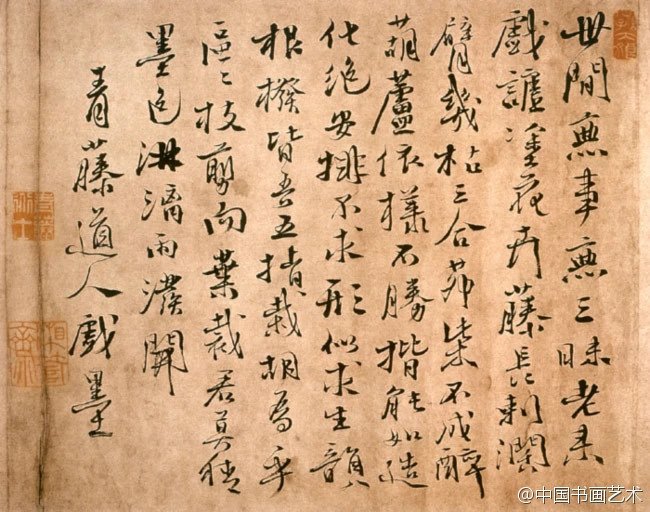 世間無事無三昧老來
戲謔塗花卉藤長刺濶
臂幾枯三合茅柴不成醉
葫蘆依樣不勝揩能如造
化絕安排不求形似求生韻
根撥皆吾五指栽胡為乎
區〻枝剪而葉裁君莫猜
墨色淋漓雨潑開
青藤道人戲墨
@中国书画艺术